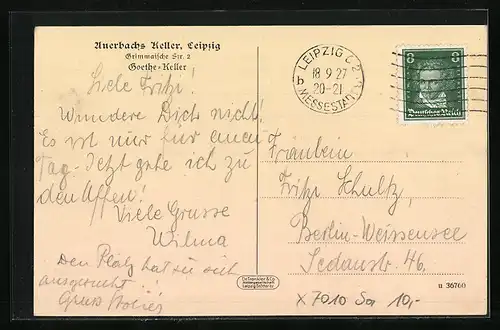 Auerbachs Keller, Leipzig
Grimmaische Str. 2
Goethe-Keller
Liebe Fritzi!
Wundere Dich nicht!
Es ist nur für einen
Tag. Jetzt gehe ich zu
den Affen!
Viele Grüsse
Wilma
Den Platz hat sie sich
ausgesucht!
Gruß
LEIPZIG C 2
b
18.9.27
20-21
MESSESTADT
8 8
Deutsches Reich
Fräulein
Fritzi Schultz,
Berlin-Weissensee
Sedanstr. 46.
Dr. Trenkler & Co.
Leipzig
u 36760
X 7010 Sa 10,-